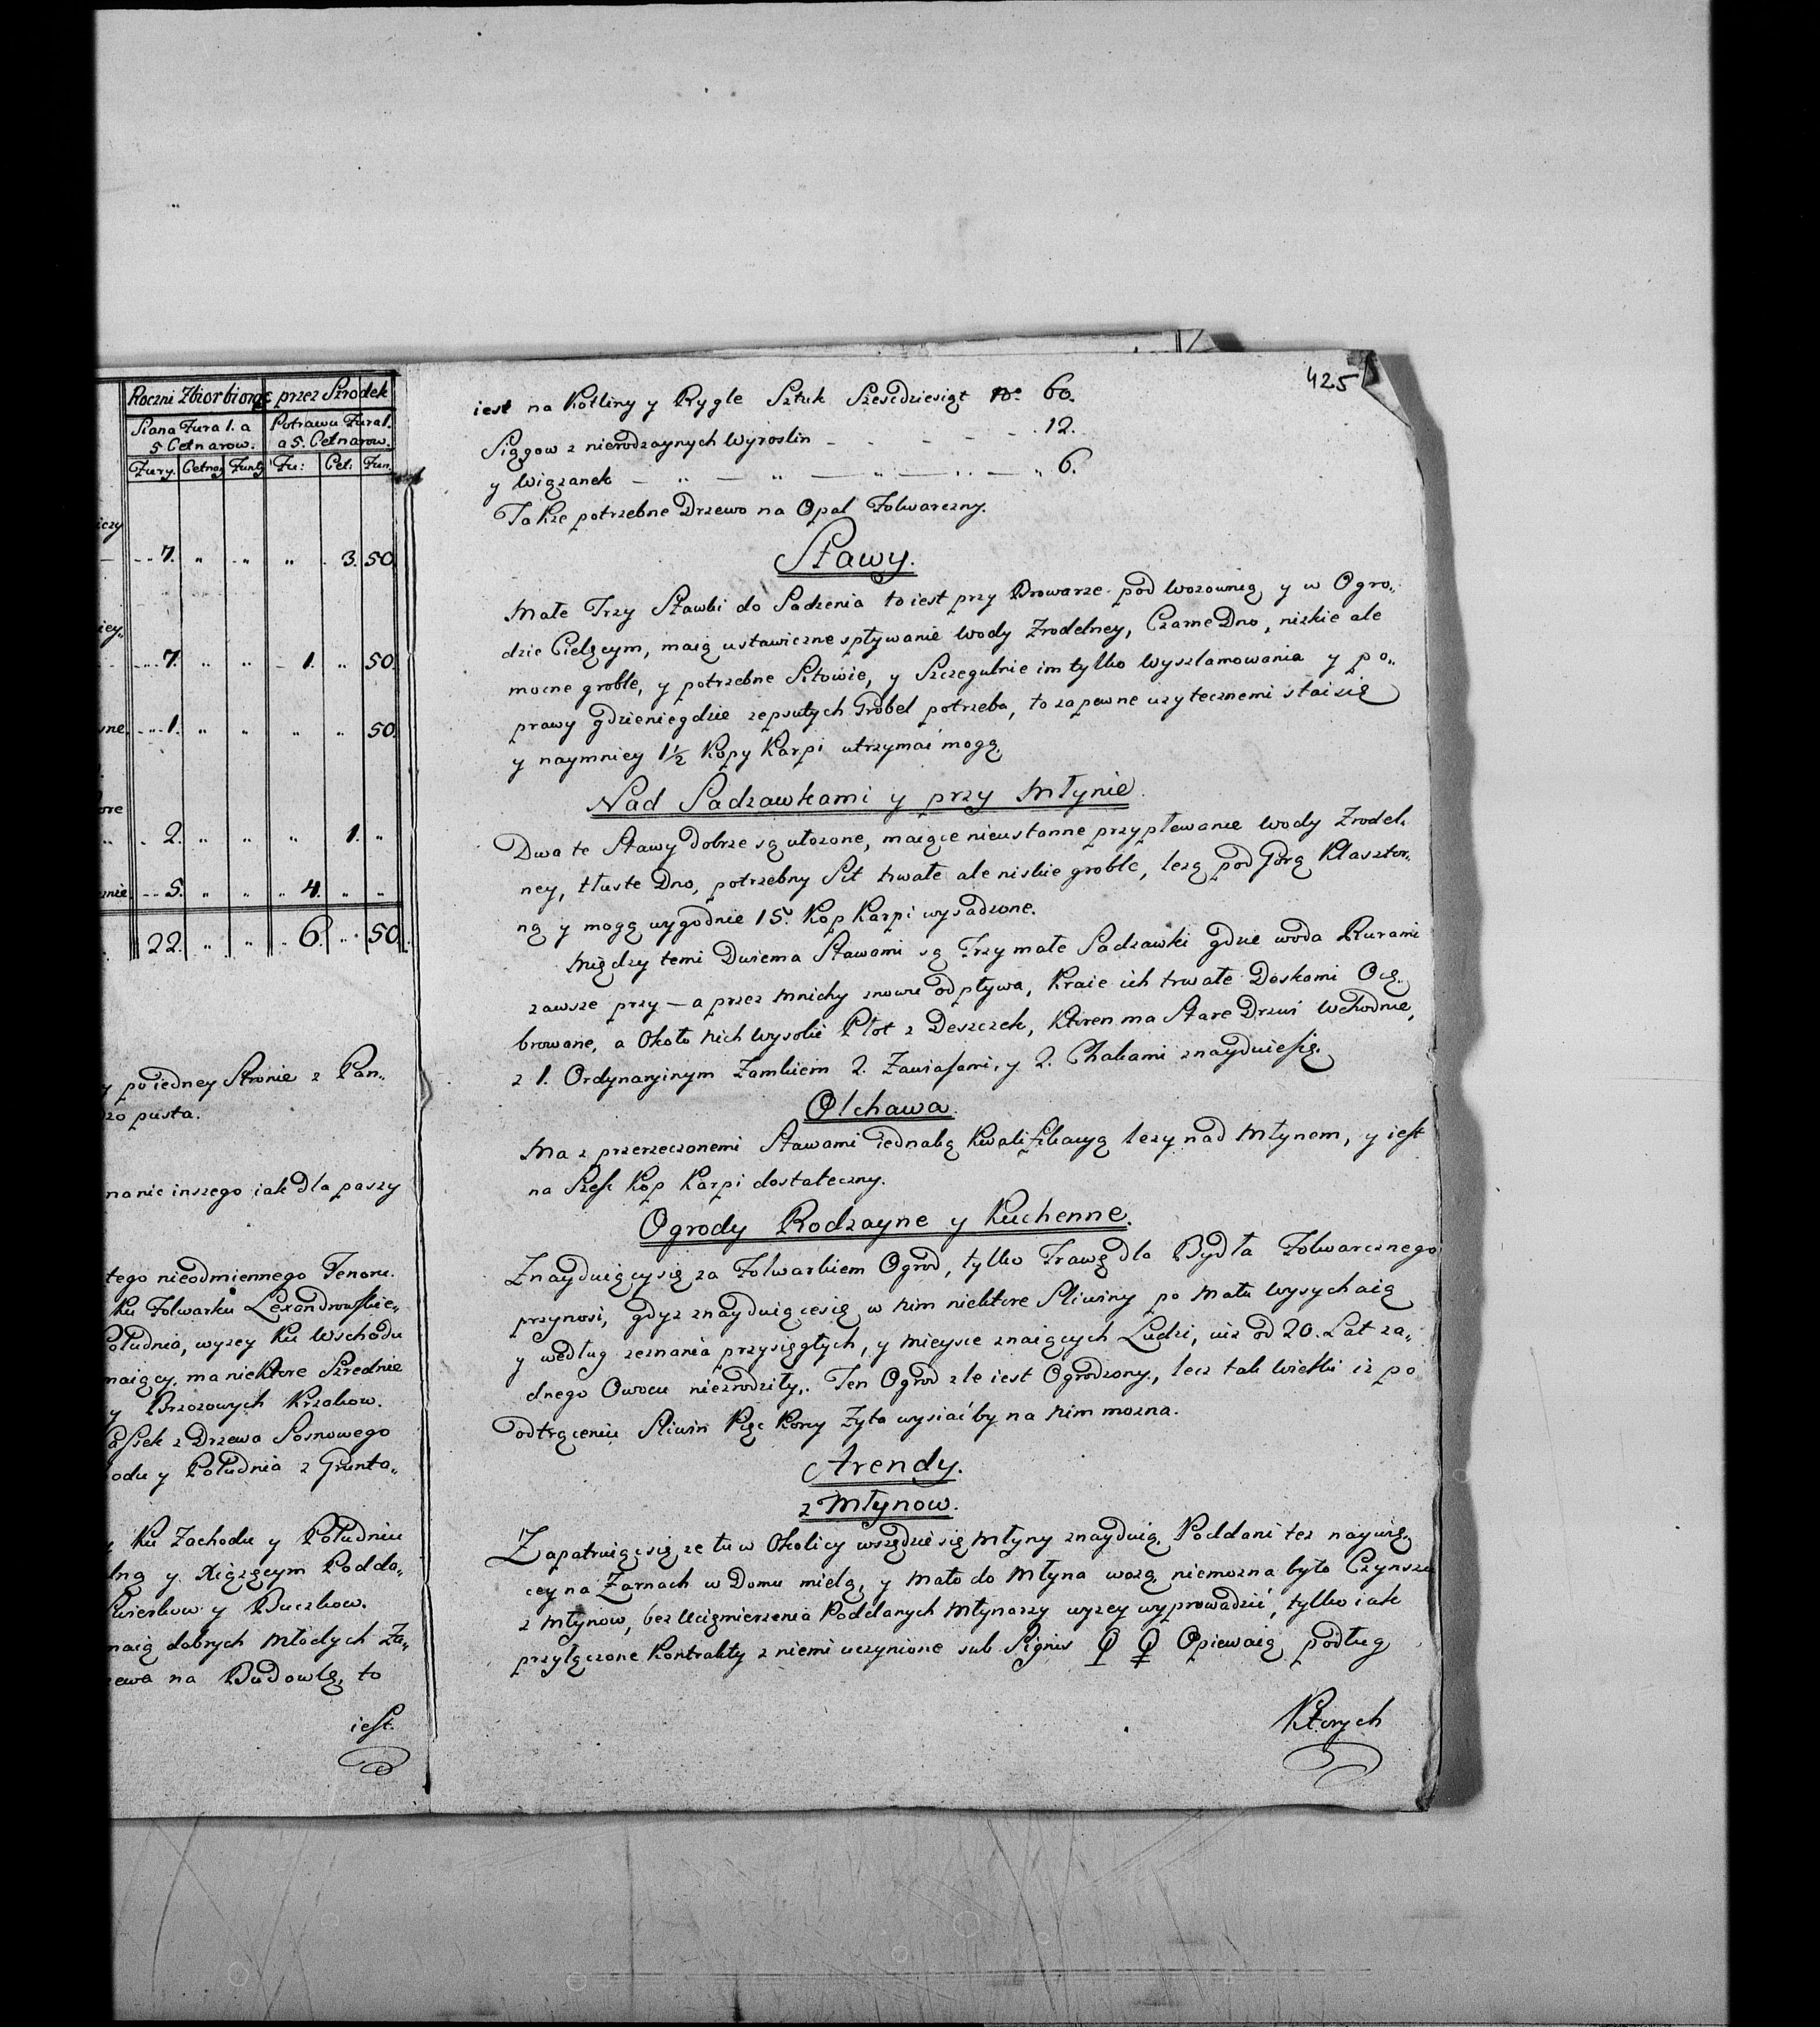 Roczni Zbior biorąc przez Szrodek
Siana Fura 1. a Potrawu Fura 1.
5 Cetnarow. a 5. Cetnarow.
Fury. Cetnar Funty Fu: Cet: Fun.
iczy
7. „ „ „ 3. 50.
iey.
7. „ „ 1. „ 50.
zne. 1. „ „ „ „ 50.
ore
2. „ „ „ 1. „
znie. 5. „ „ 4. „ „
22. „ „ 6. „ 50.
y po iedney Stronie z Pan„
zo pusta.
na nic inszego iak dla paszy
tego nieodmiennego Tenoru.
ku Folwarku Lexandrowskie„
Południa, wyzey ku Wschodu
maiący, ma niektore Szrednie
y Brzozowych Krzakow.
Lassek z Drzewa Sosnowego
odu y Południa z Grunta„
y Ku Zachodu y Południu
lną y Xiązęcym Podda„
Swierkow y Buczkow.
maią dobrych Młodych Za„
zewa na Budowlą, to
iest.
425
iest na Kotliny y Rygle Sztuk Szescdziesiąt No 60.
Siągow z nierodzaynych Wyroslin - - - - - 12.
y Wiązanek — „ — „ — „ — „ — „ 6.
Takze potrzebne Drzewo na Opał Folwarczny.
Stawy.
Małe Trzy Stawki do Sadzenia to iest przy Browarze pod Wozownią y w Ogro„
dzie Cielęcym, maią ustawiczne spływanie Wody Zrodelney, Czarne Dno, nizkie ale
mocne groble, y potrzebne Sitowie, y Szczegulnie im tylko Wyszlamowania y po„
prawy gdzieniegdzie zepsutych Grobel potrzeba, to zapewne uzytecznemi stai się
y naymniey 1½ Kopy Karpi utrzymai mogą.
Nad Sadzawkami y przy Młynie.
Dwa te Stawy Dobrze są ułozone, maiące nieustanne przypłewanie Wody Zrodel„
ney, tłuste Dno, potrzebny Sit trwałe ale niskie groble, lezą pod Gorą Klasztor„
ną y mogą wygodnie 15. Kop Karpi wysadzone.
Między temi Dwiema Stawami są Trzy małe Sadzawki gdzie woda Rurami
zawsze przy — a przez Mnichy znowu odpływa, Kraie ich trwałe Doskami Oce„
browane, a Około nich Wysoki Płot z Deszczek, Ktoren ma Stare Drzwi Wchodnie,
z 1. Ordynaryinym Zamkiem 2. Zawiasami, y 2. Chakami znayduie się.
Olchawa.
Ma z przerzeczonemi Stawami iednaką Kwalifikacyą lezy nad Młynem, y iest
na Szesc Kop Karpi dostateczny.
Ogrody Rodzayne y Kuchenne.
Znayduiący się za Folwarkiem Ogrod, tylko Trawę dla Bydła Folwarcznego
przynosi, gdyz znayduiące się w nim niektore Sliwiny po Małe Wysychaią
y według zeznania przysięgłych, y Mieysce znaiących Ludzi, iuz od 20. Lat za„
dnego Owocu niezrodziły. Ten Ogrod zle iest Ogrodzony, lecz tak Wielki iz po
odtrąceniu Sliwin Pięc Korcy Zyta wysiaćby na nim mozna.
Arendy.
z Młynow.
Zapatruiąc się ze tu w Okolicy wszędzie się Młyny znayduią, Poddani tez naywię„
cey na Zarnach w Domu mielą, y mało do Młyna wozą, niemozna było Czynszu
z Młynow, bez Uciązmierzenia Poddanych Młynarzy wyzey wyprowadzić, tylko iak
przyłączone Kontrakty z niemi uczynione sub Signis Opiewaią, podług
Ktorych